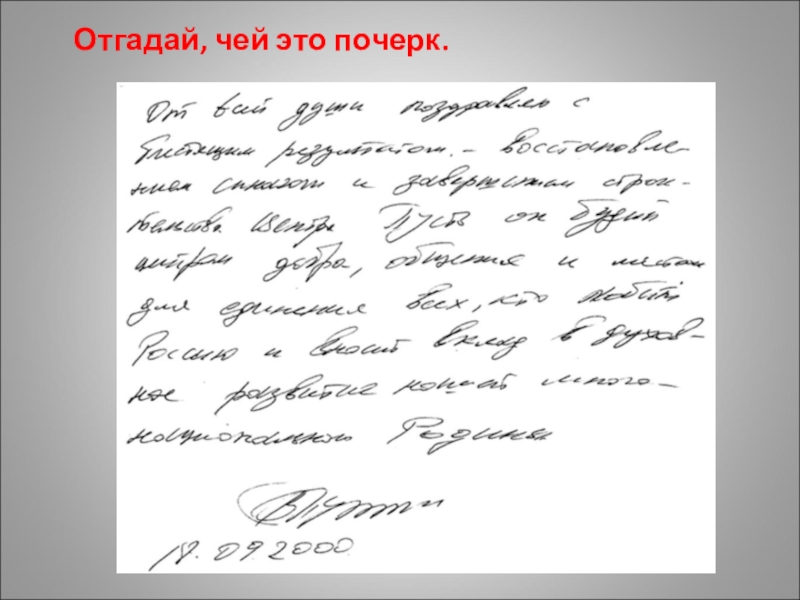 Отгадай, чей это почерк.
От всей души поздравляю с
блестящим результатом. – восстановле-
нием и завершением строи-
тельства Центра Пусть он будет
центром добра, общения и местом
для единения всех, кто любит
Россию и вносит вклад в духов-
ное развитие нашей много-
национальной Родины
ВПутин
18.09.2000